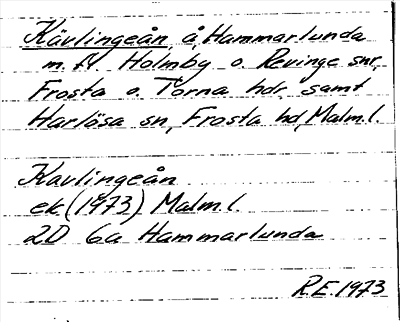 Kävlingeån å, Hammarlunda
m. fl. Holmby o. Revinge snr,
Frosta o. Torna hdr, samt
Harlösa sn, Frosta hd, Malm.l.
Kavlingeån
ek (1973) Malm l.
2D 6a Hammarlunda
R.E. 1973